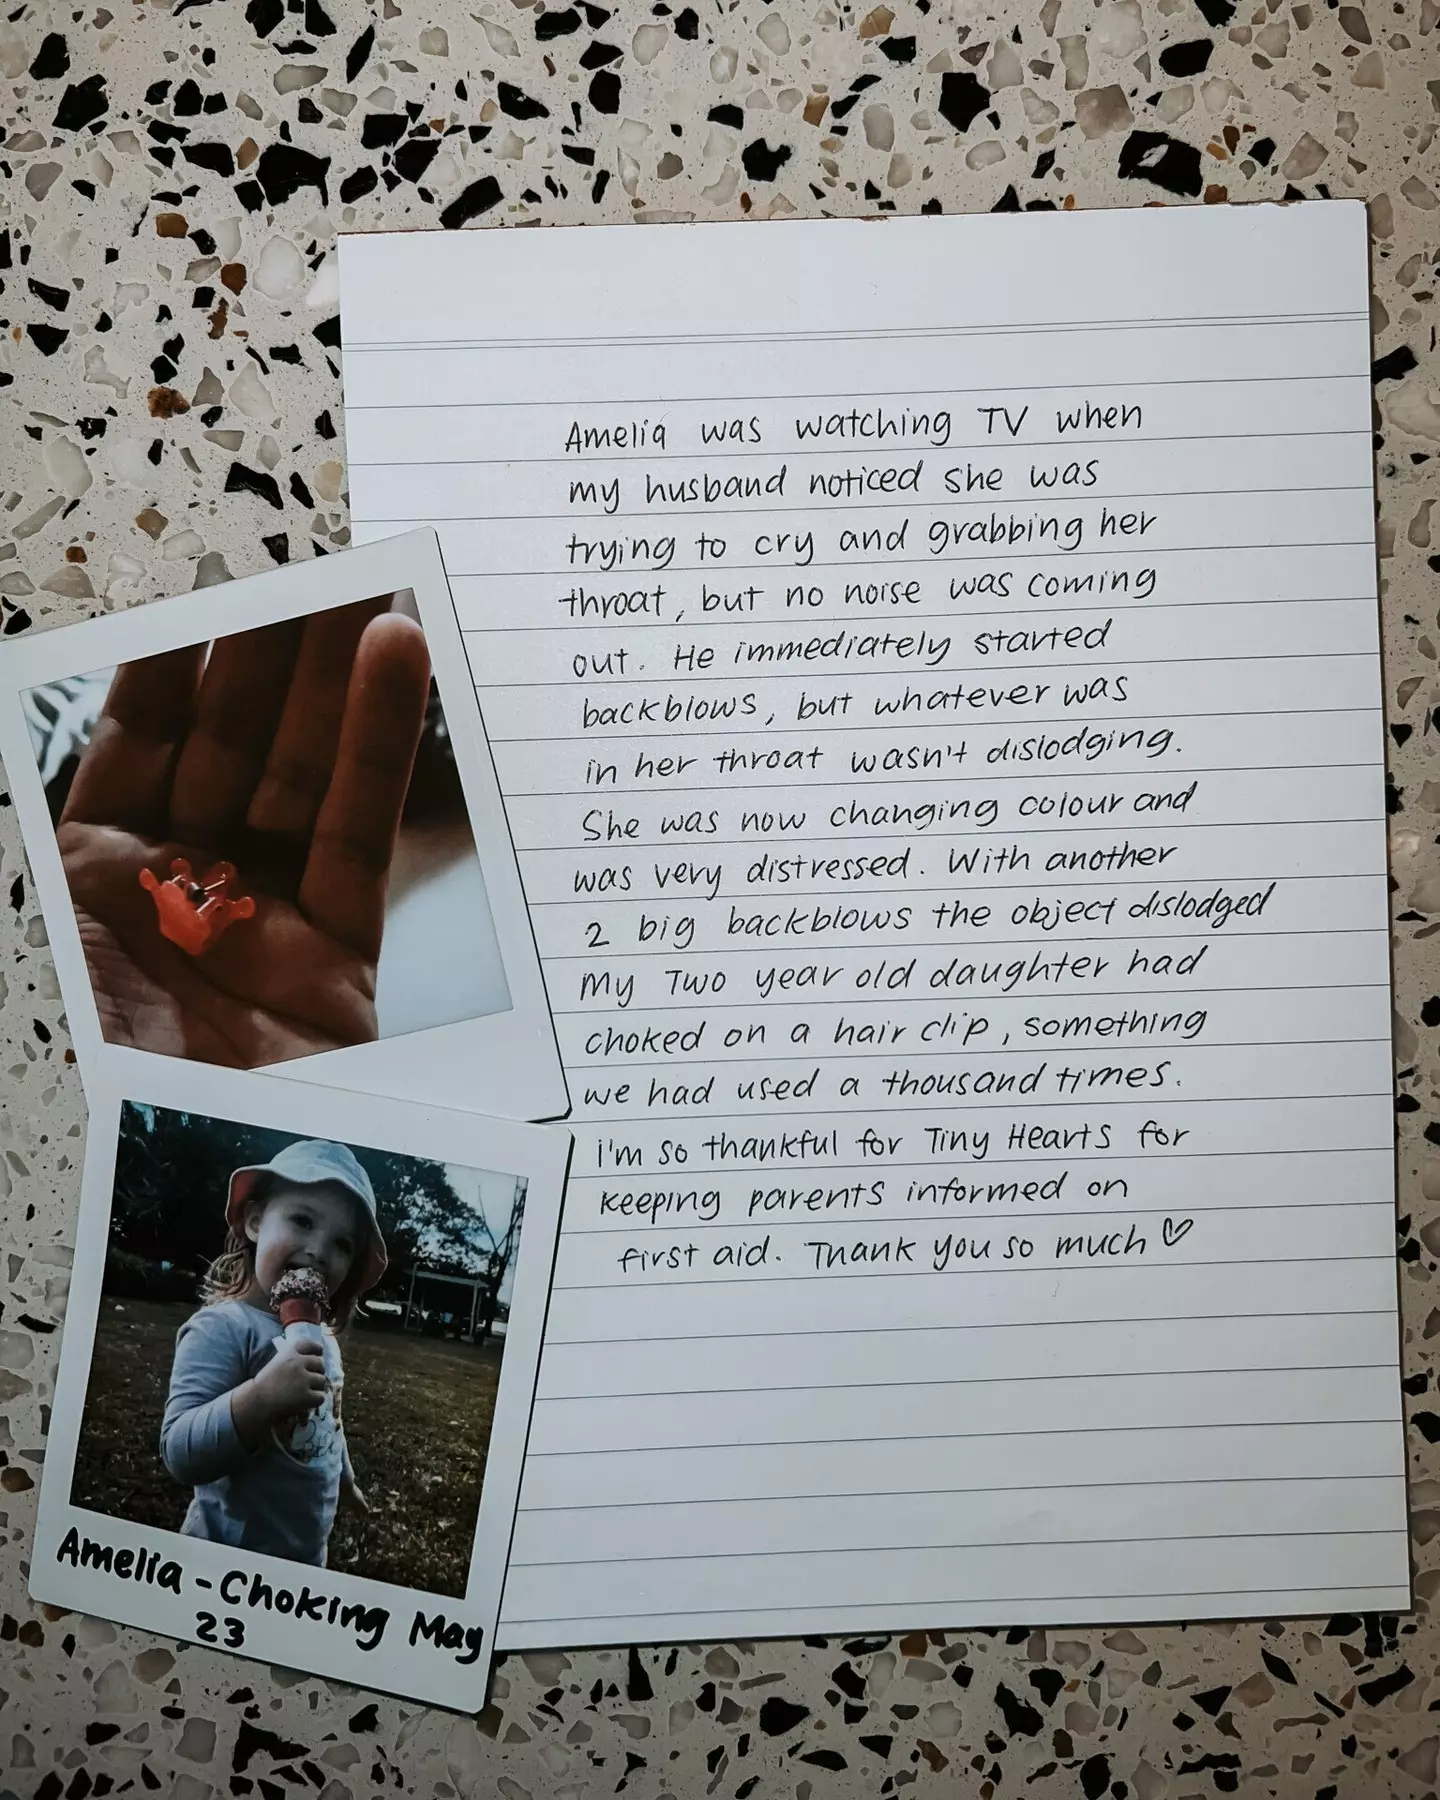 Amelia was watching TV when
my husband noticed she was
trying to cry and grabbing her
throat, but no noise was coming
out. He immediately started
backblows, but whatever was
in her throat wasn't dislodging.
She was now changing colour and
was very distressed. With another
2 big backblows the object dislodged
My Two year old daughter had
choked on a hair clip, something
we had used a thousand times.
I'm so thankful for Tiny Hearts for
keeping parents informed on
first aid. Thank you so much ♡
Amelia - Choking May
23